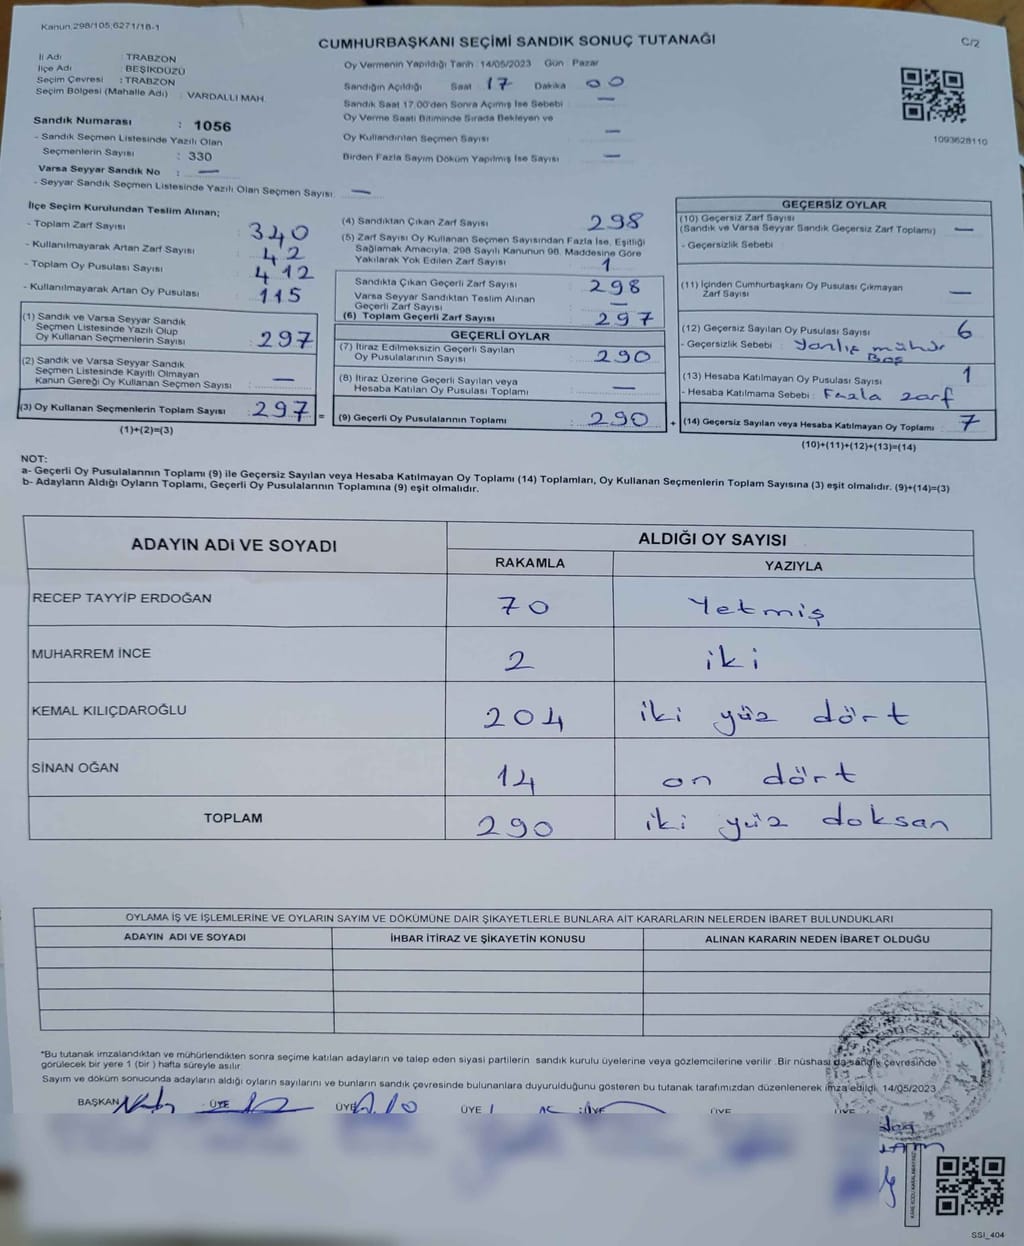 Kanun 298/105,6271/18-1
C/2
CUMHURBAŞKANI SEÇİMİ SANDIK SONUÇ TUTANAĞI
İl Adı : TRABZON
İlçe Adı : BEŞİKDÜZÜ
Seçim Çevresi : TRABZON
Seçim Bölgesi (Mahalle Adı) : VARDALLI MAH.
Sandık Numarası : 1056
- Sandık Seçmen Listesinde Yazılı Olan
Seçmenlerin Sayısı : 330
Varsa Seyyar Sandık No : —
- Seyyar Sandık Seçmen Listesinde Yazılı Olan Seçmen Sayısı: —
Oy Vermenin Yapıldığı Tarih :14/05/2023 Gün : Pazar
Sandığın Açıldığı Saat 17 Dakika 00
Sandık Saat 17.00'den Sonra Açılmış İse Sebebi : —
Oy Verme Saati Bitiminde Sırada Bekleyen ve
Oy Kullandırılan Seçmen Sayısı : —
Birden Fazla Sayım Döküm Yapılmış İse Sayısı : —
1093628110
İlçe Seçim Kurulundan Teslim Alınan;
- Toplam Zarf Sayısı 340
- Kullanılmayarak Artan Zarf Sayısı 42
- Toplam Oy Pusulası Sayısı 412
- Kullanılmayarak Artan Oy Pusulası 115
(1) Sandık ve Varsa Seyyar Sandık
Seçmen Listesinde Yazılı Olup
Oy Kullanan Seçmenlerin Sayısı 297
(2) Sandık ve Varsa Seyyar Sandık
Seçmen Listesinde Kayıtlı Olmayan
Kanun Gereği Oy Kullanan Seçmen Sayısı —
(3) Oy Kullanan Seçmenlerin Toplam Sayısı : 297 =
(1)+(2)=(3)
(4) Sandıktan Çıkan Zarf Sayısı 298
(5) Zarf Sayısı Oy Kullanan Seçmen Sayısından Fazla İse, Eşitliği
Sağlamak Amacıyla, 298 Sayılı Kanunun 98. Maddesine Göre
Yakılarak Yok Edilen Zarf Sayısı 1
Sandıkta Çıkan Geçerli Zarf Sayısı : 298
Varsa Seyyar Sandıktan Teslim Alınan
Geçerli Zarf Sayısı —
(6) Toplam Geçerli Zarf Sayısı : 297
GEÇERLİ OYLAR
(7) İtiraz Edilmeksizin Geçerli Sayılan
Oy Pusulalarının Sayısı : 290
(8) İtiraz Üzerine Geçerli Sayılan veya
Hesaba Katılan Oy Pusulası Toplamı : —
(9) Geçerli Oy Pusulalarının Toplamı : 290 +
GEÇERSİZ OYLAR
(10) Geçersiz Zarf Sayısı
(Sandık ve Varsa Seyyar Sandık Geçersiz Zarf Toplamı) —
- Geçersizlik Sebebi :
(11) İçinden Cumhurbaşkanı Oy Pusulası Çıkmayan
Zarf Sayısı —
(12) Geçersiz Sayılan Oy Pusulası Sayısı 6
- Geçersizlik Sebebi : Yanlış mühür
Boş
(13) Hesaba Katılmayan Oy Pusulası Sayısı 1
- Hesaba Katılmama Sebebi : Fazla zarf
(14) Geçersiz Sayılan veya Hesaba Katılmayan Oy Toplamı : 7
(10)+(11)+(12)+(13)=(14)
NOT:
a- Geçerli Oy Pusulalarının Toplamı (9) ile Geçersiz Sayılan veya Hesaba Katılmayan Oy Toplamı (14) Toplamları, Oy Kullanan Seçmenlerin Toplam Sayısına (3) eşit olmalıdır. (9)+(14)=(3)
b- Adayların Aldığı Oyların Toplamı, Geçerli Oy Pusulalarının Toplamına (9) eşit olmalıdır.
ADAYIN ADI VE SOYADI ALDIĞI OY SAYISI
RAKAMLA YAZIYLA
RECEP TAYYİP ERDOĞAN 70 Yetmiş
MUHARREM İNCE 2 iki
KEMAL KILIÇDAROĞLU 204 iki yüz dört
SİNAN OĞAN 14 on dört
TOPLAM 290 iki yüz doksan
OYLAMA İŞ VE İŞLEMLERİNE VE OYLARIN SAYIM VE DÖKÜMÜNE DAİR ŞİKAYETLERLE BUNLARA AİT KARARLARIN NELERDEN İBARET BULUNDUKLARI
ADAYIN ADI VE SOYADI İHBAR İTİRAZ VE ŞİKAYETİN KONUSU ALINAN KARARIN NEDEN İBARET OLDUĞU
*Bu tutanak imzalandıktan ve mühürlendikten sonra seçime katılan adayların ve talep eden siyasi partilerin sandık kurulu üyelerine veya gözlemcilerine verilir .Bir nüshası da sandık çevresinde
görülecek bir yere 1 (bir ) hafta süreyle asılır.
Sayım ve döküm sonucunda adayların aldığı oyların sayılarını ve bunların sandık çevresinde bulunanlara duyurulduğunu gösteren bu tutanak tarafımızdan düzenlenerek imza edildi. 14/05/2023
BAŞKAN ÜYE ÜYE ÜYE ÜYE ÜYE ÜYE
SSI_404